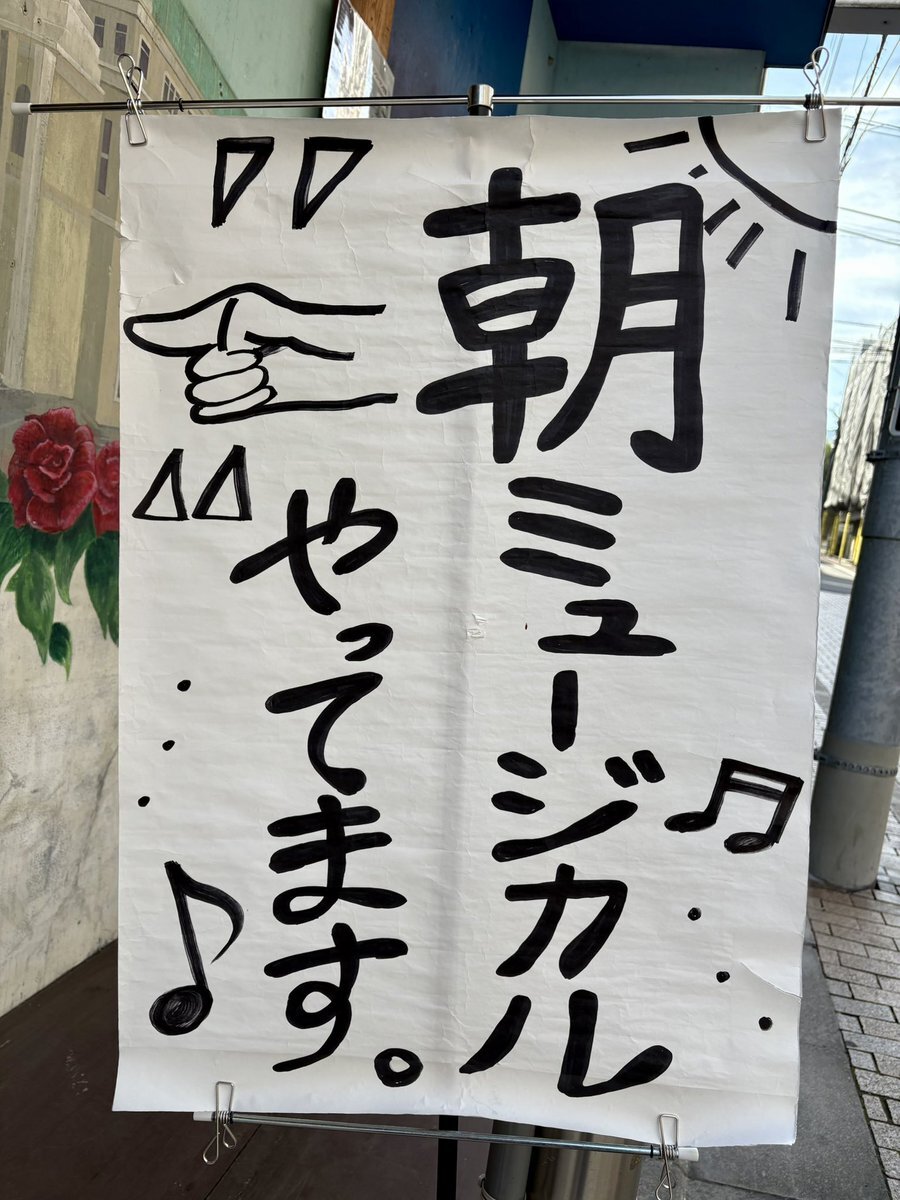 朝ミュージカル
やってます。